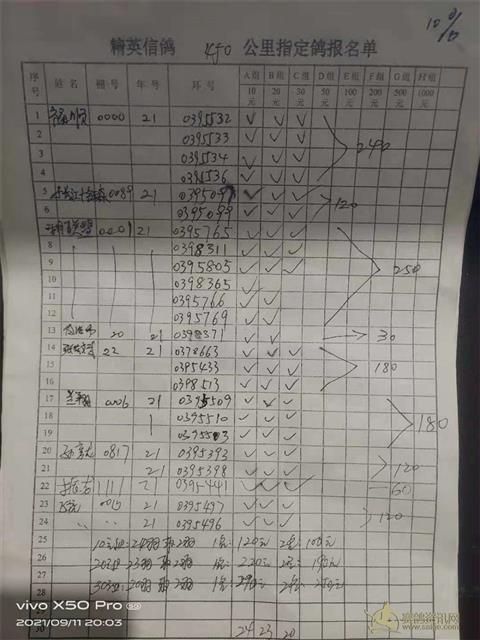 10%
精英信鸽 450 公里指定鸽报名单
序号 姓名 棚号 年号 环号 A组10元 B组20元 C组30元 D组50元 E组100元 F组200元 G组500元 H组1000元
1 0000 21 0395532 ✓ ✓ ✓
2 0395533 ✓ ✓ ✓ 240
3 0395534 ✓ ✓ ✓
4 0395536 ✓ ✓ ✓
5 0089 21 0395097 ✓ ✓ ✓ 120
6 0395099 ✓ ✓ ✓
21 0395765 ✓ ✓ ✓
8 0398311 ✓ ✓ ✓
9 0395805 ✓ ✓ ✓ 250
10 0398365 ✓ ✓
11 0395766 ✓ ✓
12 0395769 ✓ ✓
13 20 21 0398371 ✓ ✓ 30
14 22 21 0378663 ✓ ✓ ✓
15 0395433 ✓ ✓ ✓ 180
16 0398513 ✓ ✓ ✓
17 21 0395509 ✓ ✓ ✓
18 0395510 ✓ ✓ ✓ 180
19 0395503 ✓ ✓ ✓
20 0817 21 0395393 ✓ ✓ ✓
21 21 0395398 ✓ ✓ ✓ 120
22 1111 21 0395441 ✓ ✓ ✓ 60
23 0395497 ✓ ✓ ✓ 120
24 21 0395496 ✓ ✓ ✓
25 10元组: 24羽 取2羽 1名: 120元 2名: 100元
26 20元组: 23羽 取2羽 1名: 220元 2名: 190元
27 30元组: 20羽 取2羽 1名: 290元 2名: 250元
28
29
30 24 23 20
vivo X50 Pro
2021/09/11 20:03
赛鸽资讯网
www.saige.com